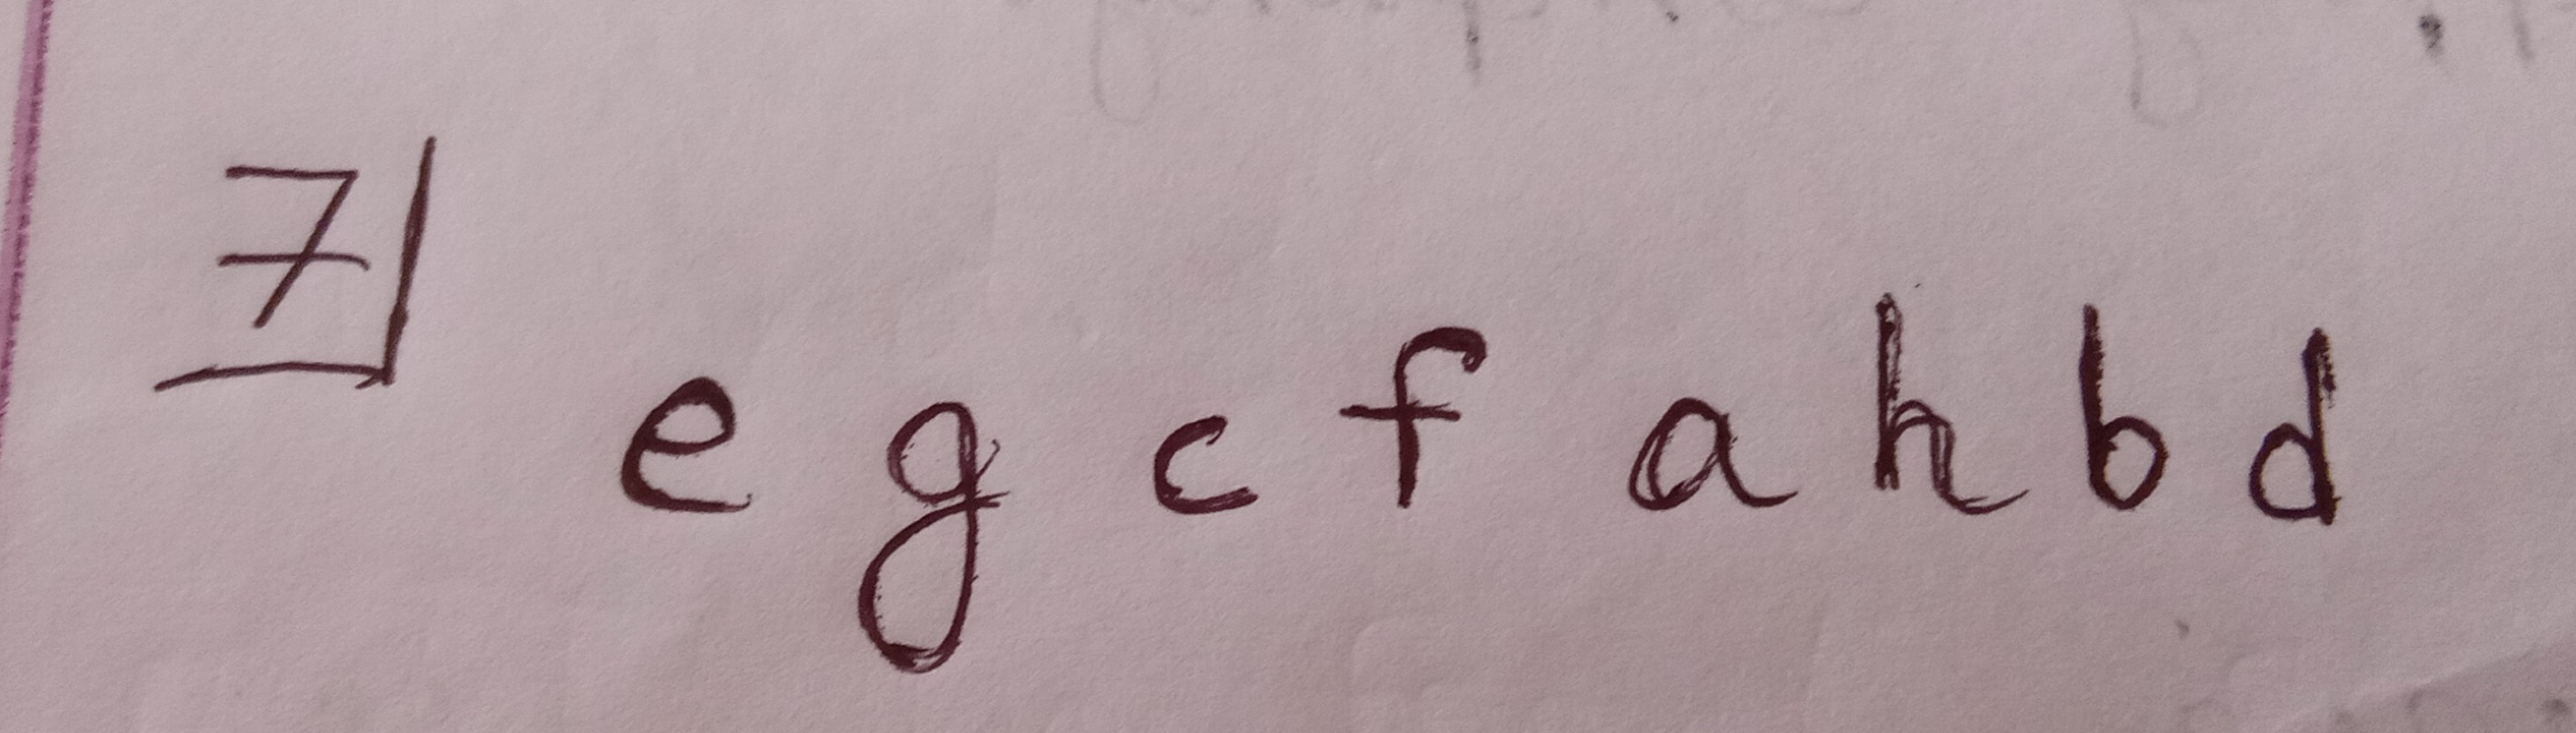 7
e g c f a h b d